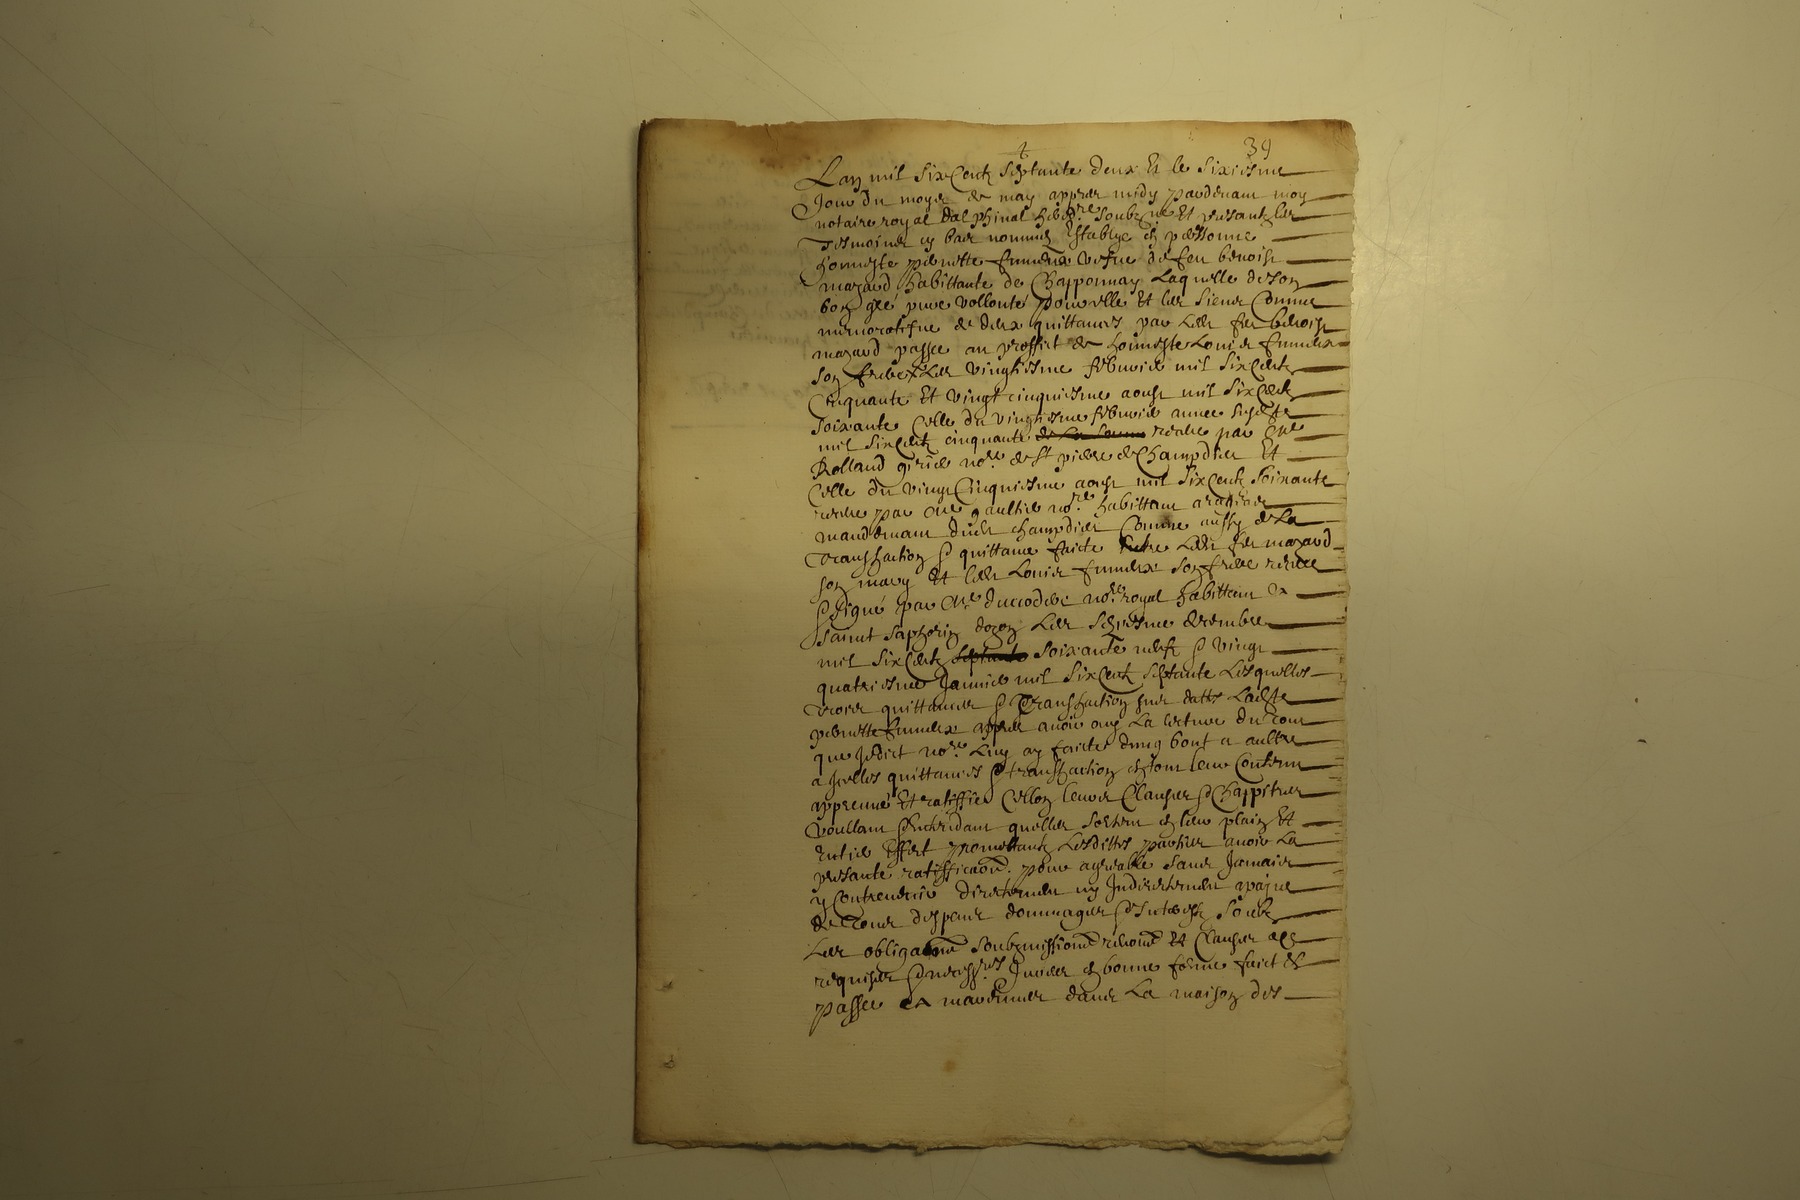 39
Lan mil six Centz septante deux Et le sixiesme
Jour du moys de may appres midy pardevant moy
notaire royal dalphinal soubzne Et presantz les
Tesmoins cy bas nommes Establye en personne
honneste pernette vefve de feu benoist
mazard habittante de Chapponnay Laquelle de son
bon gré pure vollonté pour elle Et les siens Comme
de deux quittances par led. feu benoist
mazard passee au proffict de honneste Louis
son frere Les vingtiesme febvrier mil six Centz
Cinquante Et vingt cinquiesme aoust mil six Centz
soixante Celle du vingtiesme febvrier annee susd.te
mil six Centz cinquante receue par Me
Rolland nore de st pierre de Champdieu Et
Celle du vingt Cinquiesme aoust mil six Centz soixante
receue par Me gaultier nore habittant
mandement dud. champdieu Comme aussy de La
Transhaction & quittance faicte Entre led. feu mazard
son mary Et led. Louis son frere receue
& signé par Me nore royal habittant a
saint saphorin dozon Les decembre
mil six Centz septante soixante neuf & vingt
quatriesme Janvier mil six Centz septante Lesquelles
quittances & Transhaction sus datte Ladte
pernette appres avoir ouy La lecture du tout
que Jedict nore Luy ay faicte dung bout a aultre
a Jcelles quittances & transhaction en tout leur Contenu
appreuvé Et ratiffié sellon leurs Clauses & Chappitres
voullant & Entendant quelles sortent en leur plain Et
Entier Effect promettant Lesdittes parties avoir La
presante ratifficaon pour agreable sans Jamais
y Contrevenir directement ny Jndirectement a paine
de tous despens dommages & Jnterestz soubz
Les obligaons soubzmissions renons Et Clauses
requises & necessres Jurees en bonne forme faict &
passee a marennes dans La maison des